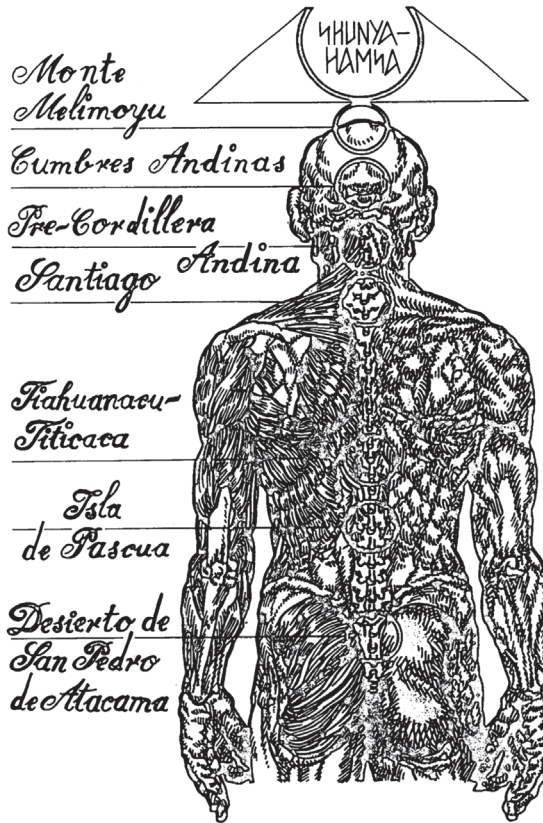 SHUNYA-
HAMSA
Monte
Melimoyu
Cumbres Andinas
Pre-Cordillera
Andina
Santiago
Tiahuanacu-
Titicaca
Isla
de Pascua
Desierto de
San Pedro
de Atacama